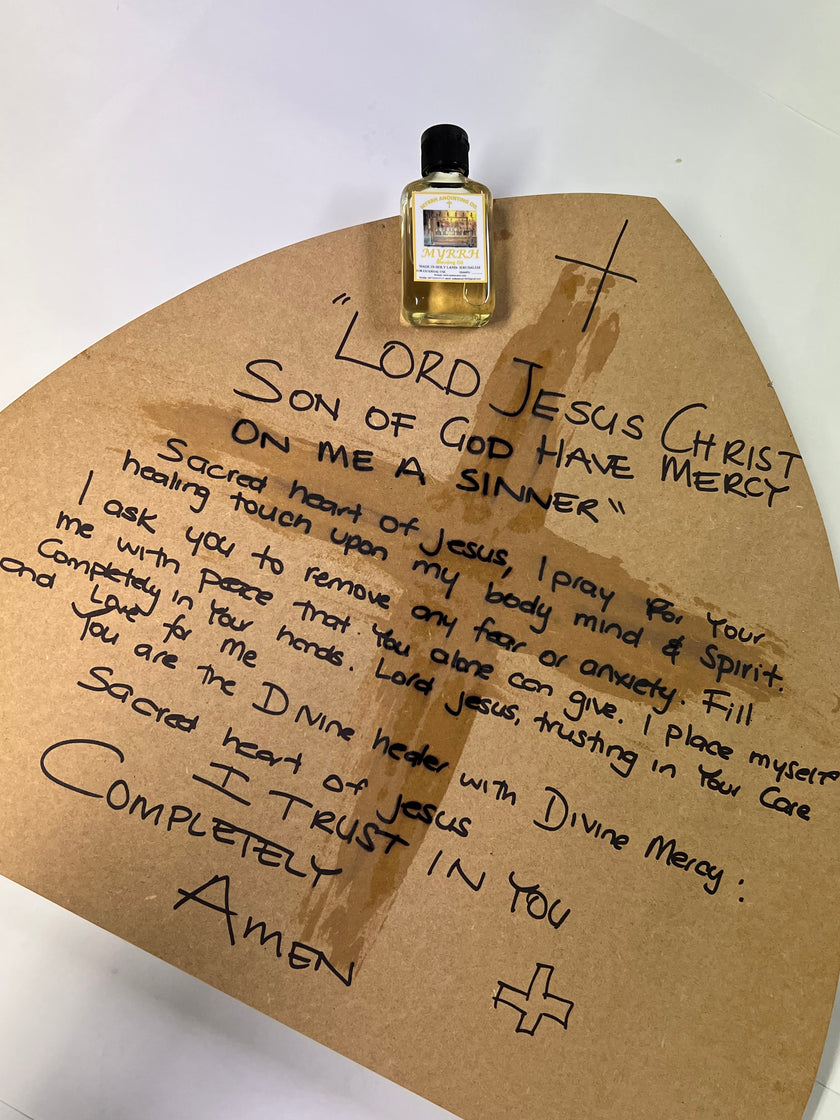 MYRRH ANOINTING OIL
MYRRH
Blessing Oil
MADE IN HOLY LAND JERUSALEM
FOR EXTERNAL USE
"LORD JESUS CHRIST
SON OF GOD HAVE MERCY
ON ME A SINNER"
Sacred heart of Jesus, I pray for Your
healing touch upon my body mind & Spirit.
I ask you to remove any fear or anxiety. Fill
me with peace that You alone can give. I place myself
Completely in Your hands. Lord Jesus, trusting in Your Care
and Love for Me
You are the Divine healer with Divine Mercy:
Sacred heart of Jesus
I TRUST IN YOU
COMPLETELY
AMEN